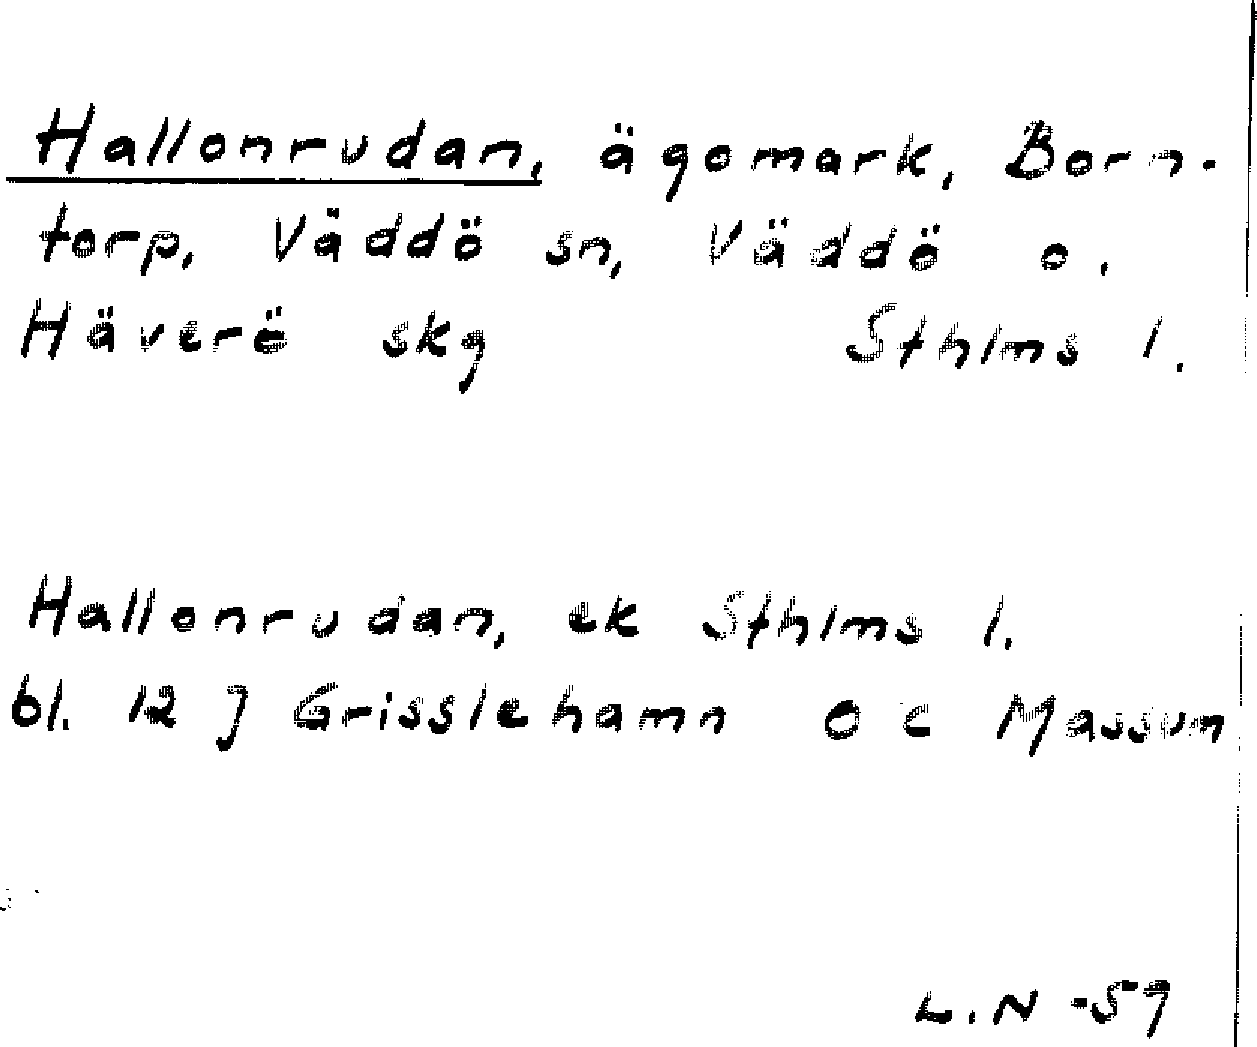 Hallonrudan, ägomark, Born-
torp, Väddö sn, Väddö o.
Häverë skg Sthlms l.
Hallonrudan, ek Sthlms l.
bl. 12 J Grisslehamn O C Massum
L.N -59